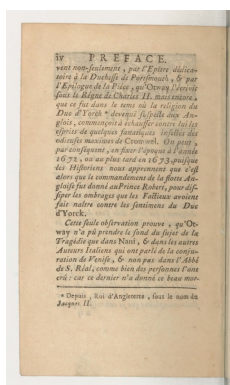 iv PREFACE.
vent non-seulement, par l'Epître dédica-
toire à la Duchesse de Portsmouth, & par
l'Epilogue de la Piéce, qu'Otway l'écrivit
sous le Régne de Charles II. mais encore,
que ce fut dans le tems où la religion du
Duc d'Yorck * devenuë suspecte aux An-
glois, commençoit à échauffer contre lui les
esprits de quelques fanatiques infectés des
odieuses maximes de Cromwel. On peut,
par conséquent, en fixer l'époque à l'année
1672, ou au plus tard en 1673, puisque
les Historiens nous apprennent que c'est
alors que le commandement de la flotte An-
gloise fut donné au Prince Robert, pour dis-
siper les ombrages que les Factieux avoient
fait naître contre les sentimens du Duc
d'Yorck.
Cette seule observation prouve, qu'Ot-
way n'a pû prendre le fond du sujet de sa
Tragédie que dans Nani, & dans les autres
Auteurs Italiens qui ont parlé de la conju-
ration de Venise, & non pas dans l'Abbé
de S. Réal, comme bien des personnes l'ont
crû: car ce dernier n'a donné ce beau mor-
* Depuis, Roi d'Angleterre, sous le nom de
Jacques II.